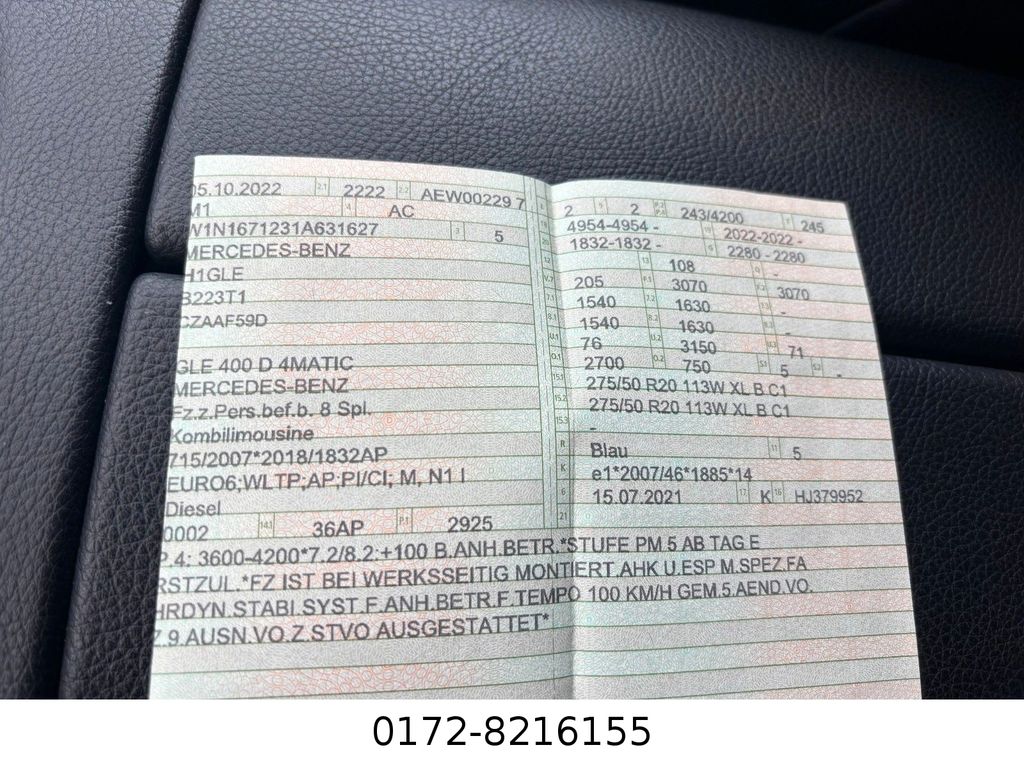 05.10.2022 2.1 2222 2.2 AEW00229 7
M1 4 AC
W1N1671231A631627 3 5
MERCEDES-BENZ
H1GLE
B223T1
CZAAF59D
GLE 400 D 4MATIC
MERCEDES-BENZ
Fz.z.Pers.bef.b. 8 Spl.
Kombilimousine
715/2007*2018/1832AP
EURO6;WLTP;AP;PI/CI; M, N1 I
Diesel
0002 14.1 36AP P.1 2925
2 2 243/4200 245
4954-4954 - 2022-2022 -
1832-1832 - 2280 - 2280
13 108 -
205 3070 3070
1540 7.2 1630 -
1540 8.2 1630 -
76 3150 71
O.1 2700 O.2 750 S.1 5 S.2 -
15.1 275/50 R20 113W XL B C1
15.2 275/50 R20 113W XL B C1
15.3 -
R Blau 11 5
K e1*2007/46*1885*14
6 15.07.2021 17 K 16 HJ379952
21
P.4: 3600-4200*7.2/8.2:+100 B.ANH.BETR.*STUFE PM 5 AB TAG E
RSTZUL.*FZ IST BEI WERKSSEITIG MONTIERT.AHK U.ESP M.SPEZ.FA
HRDYN.STABI.SYST.F.ANH.BETR.F.TEMPO 100 KM/H GEM.5.AEND.VO.
Z.9.AUSN.VO.Z.STVO AUSGESTATTET*
0172-8216155